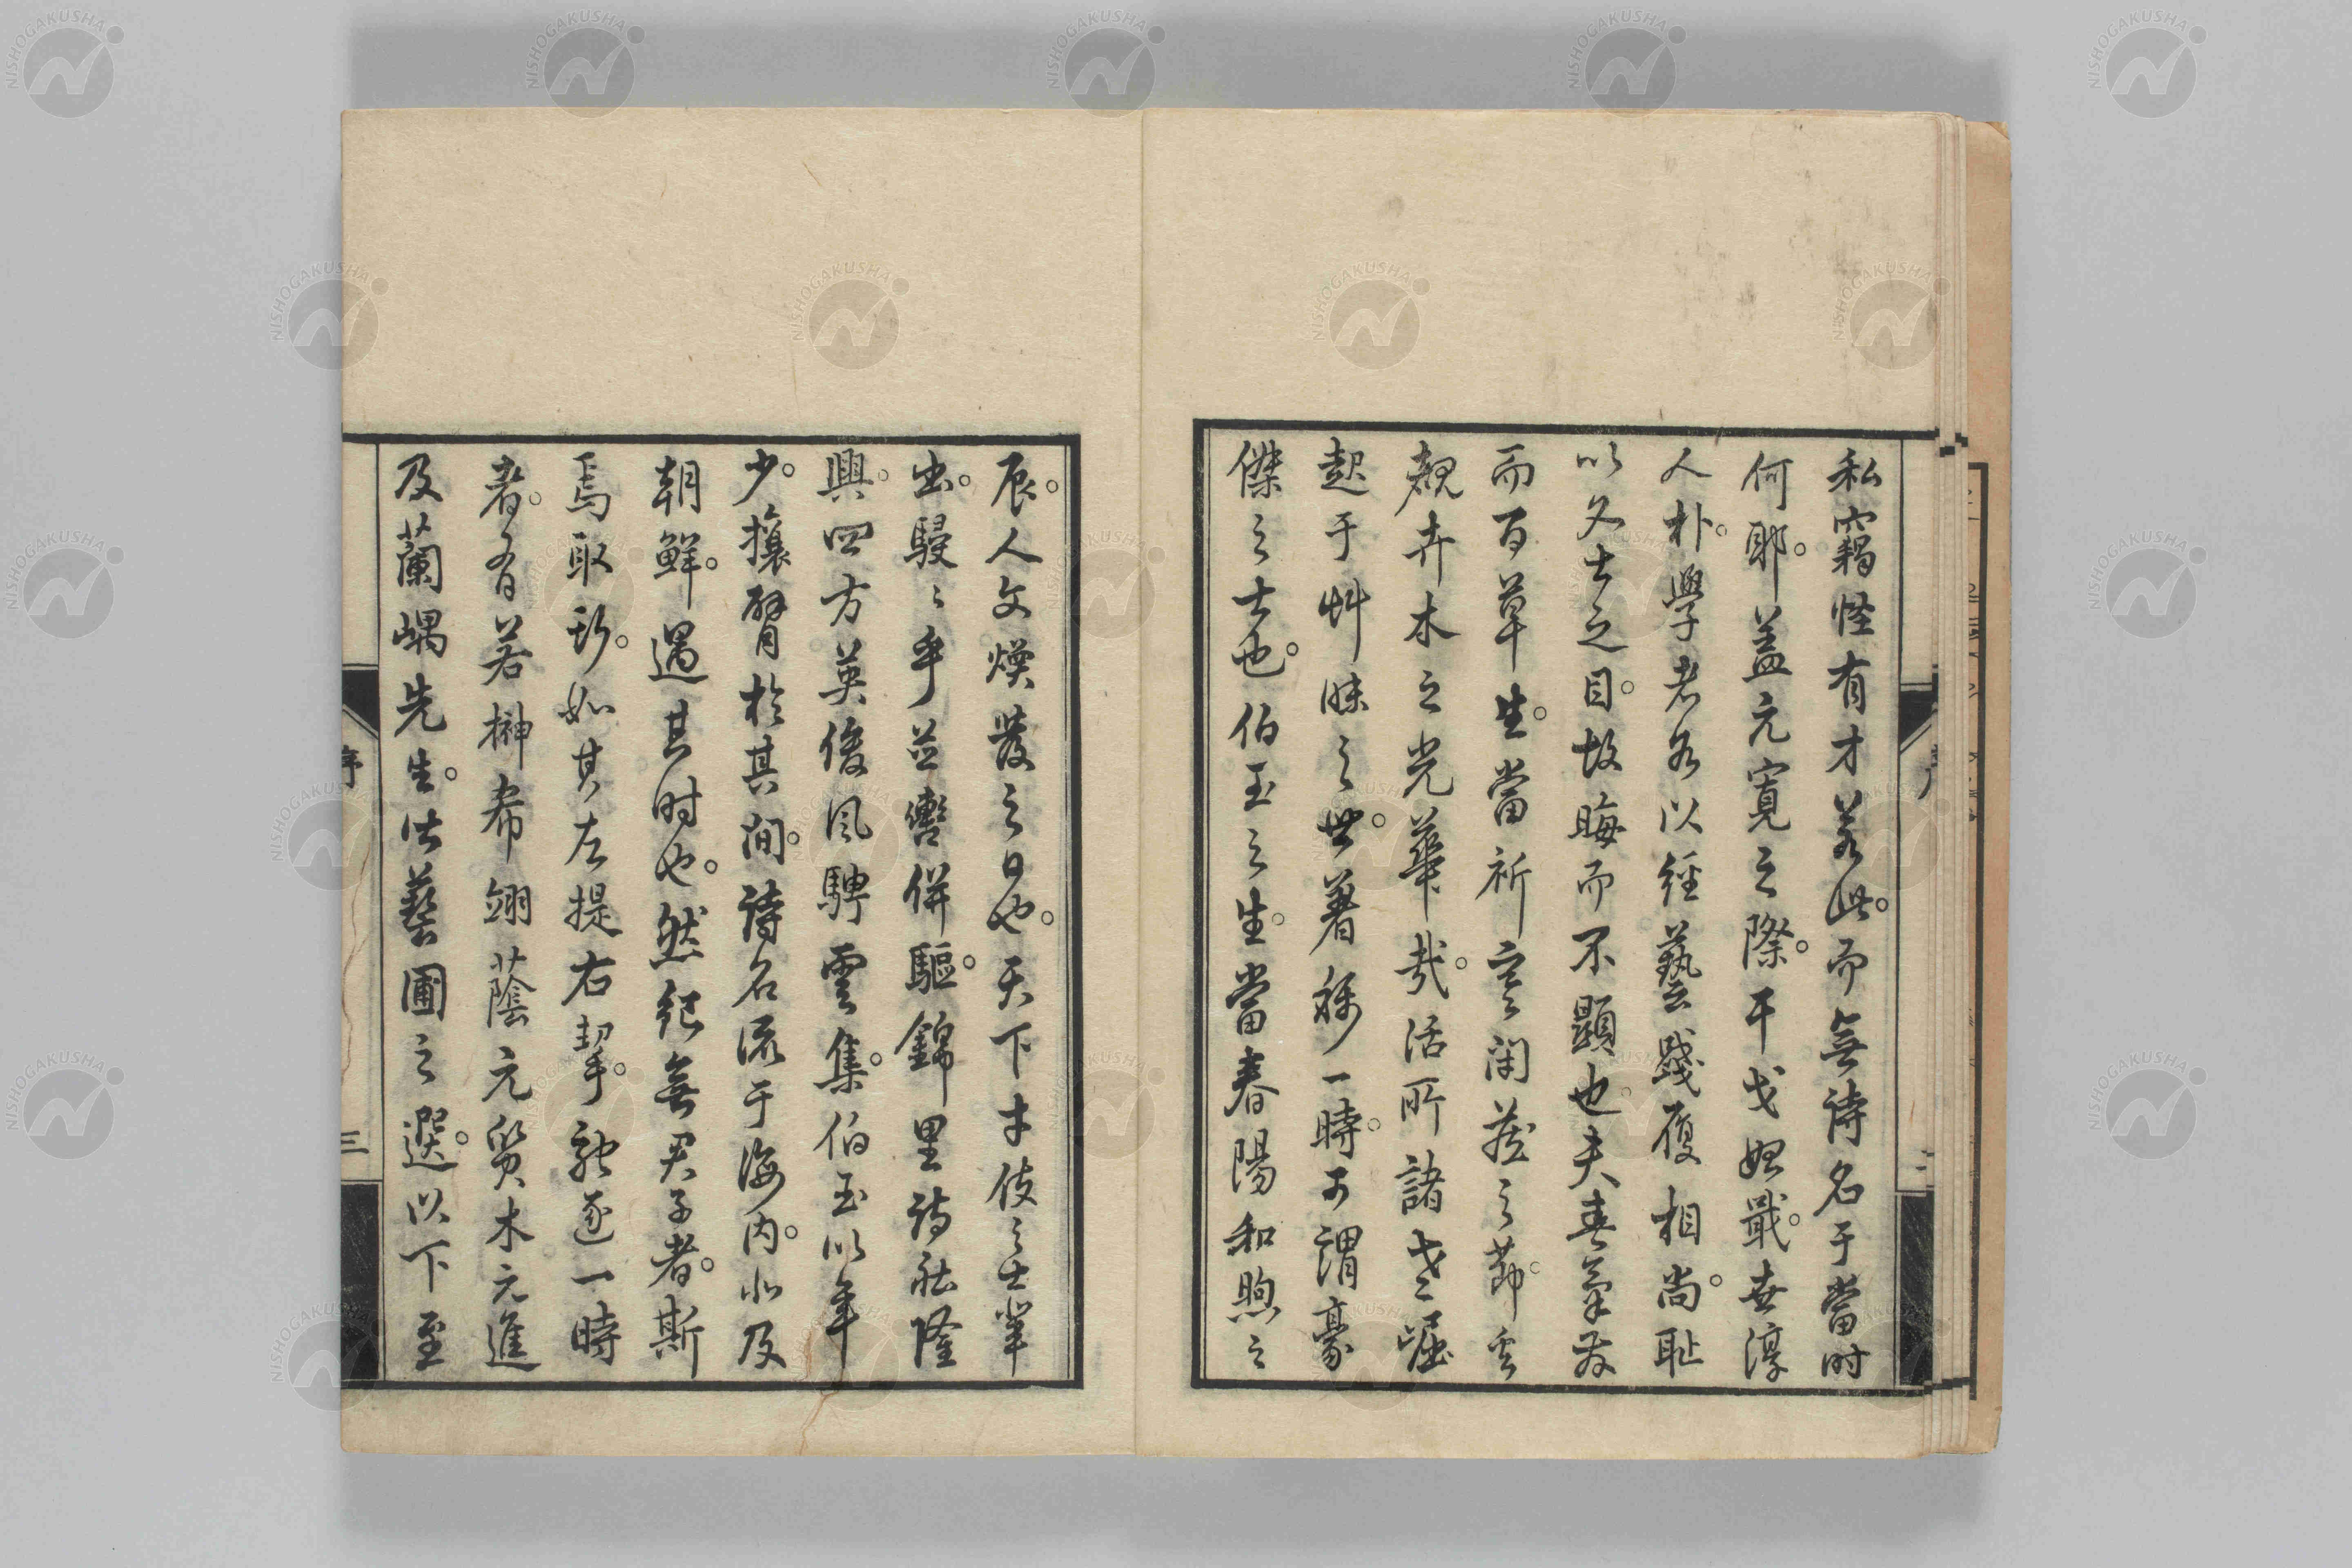 私竊怪有才若此。而無詩名于當時
何耶。蓋元寛之際。干戈始戢。世淳
人朴。學者各以經藝踐履相尚。耻
以文士之目。故晦而不顯也。夫春氣發
而百草生。當祈寒閉蔵之節。
覩卉木之光華哉。活所諸老崛
起于艸昧之世。著称一時。可謂豪
傑之士也。伯玉之生。當春陽和煦之
辰。人文煥發之日也。天下才伎之士輩
出。駸〻乎並轡併駆。錦里詩社隆
興。四方英俊風騁雲集。伯玉以年
少。攘臂於其間。詩名流于海内。以及
朝鮮。遇其时也。然
無君子者。斯
焉取斯。如其左提右挈。馳逐一時
者。有若榊希翊蔭元質木元進
及蘭嵎先生。
藝圃之選。以下至
序
三